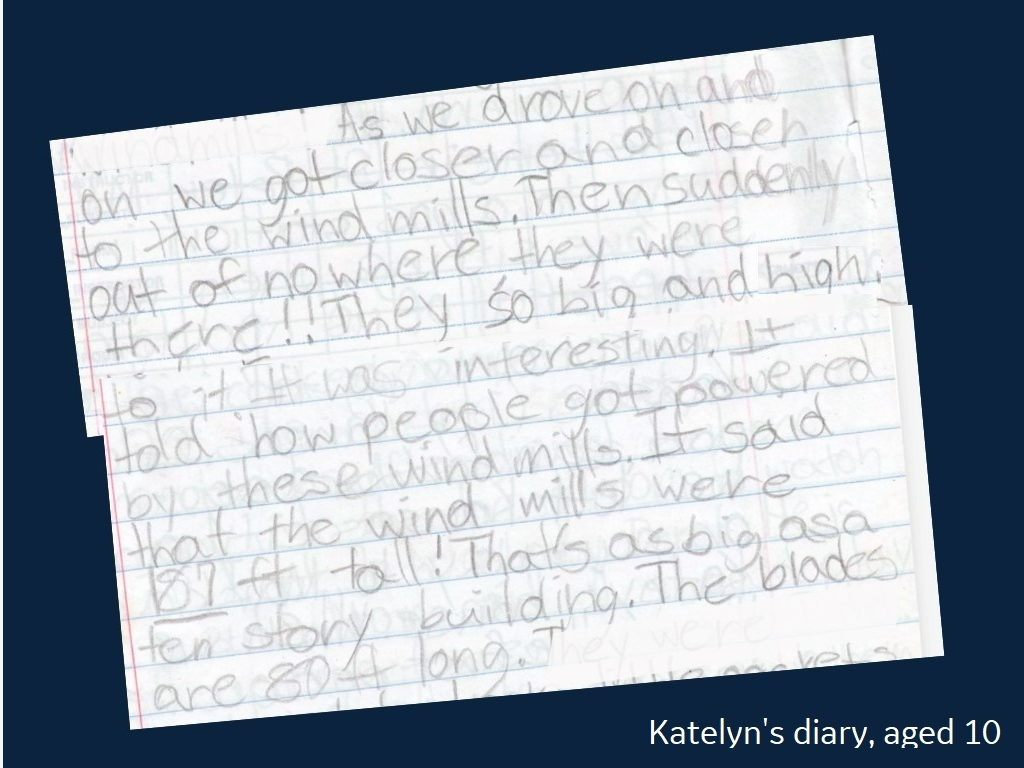 As we drove on and
on we got closer and closer
to the wind mills. Then suddenly
out of nowhere they were
there!! They so big and high.
to it. It was interesting. It
told how people got powered
by these wind mills. It said
that the wind mills were
187 ft tall! That's as big as a
ten story building. The blades
are 80 ft long. They were
Katelyn's diary, aged 10